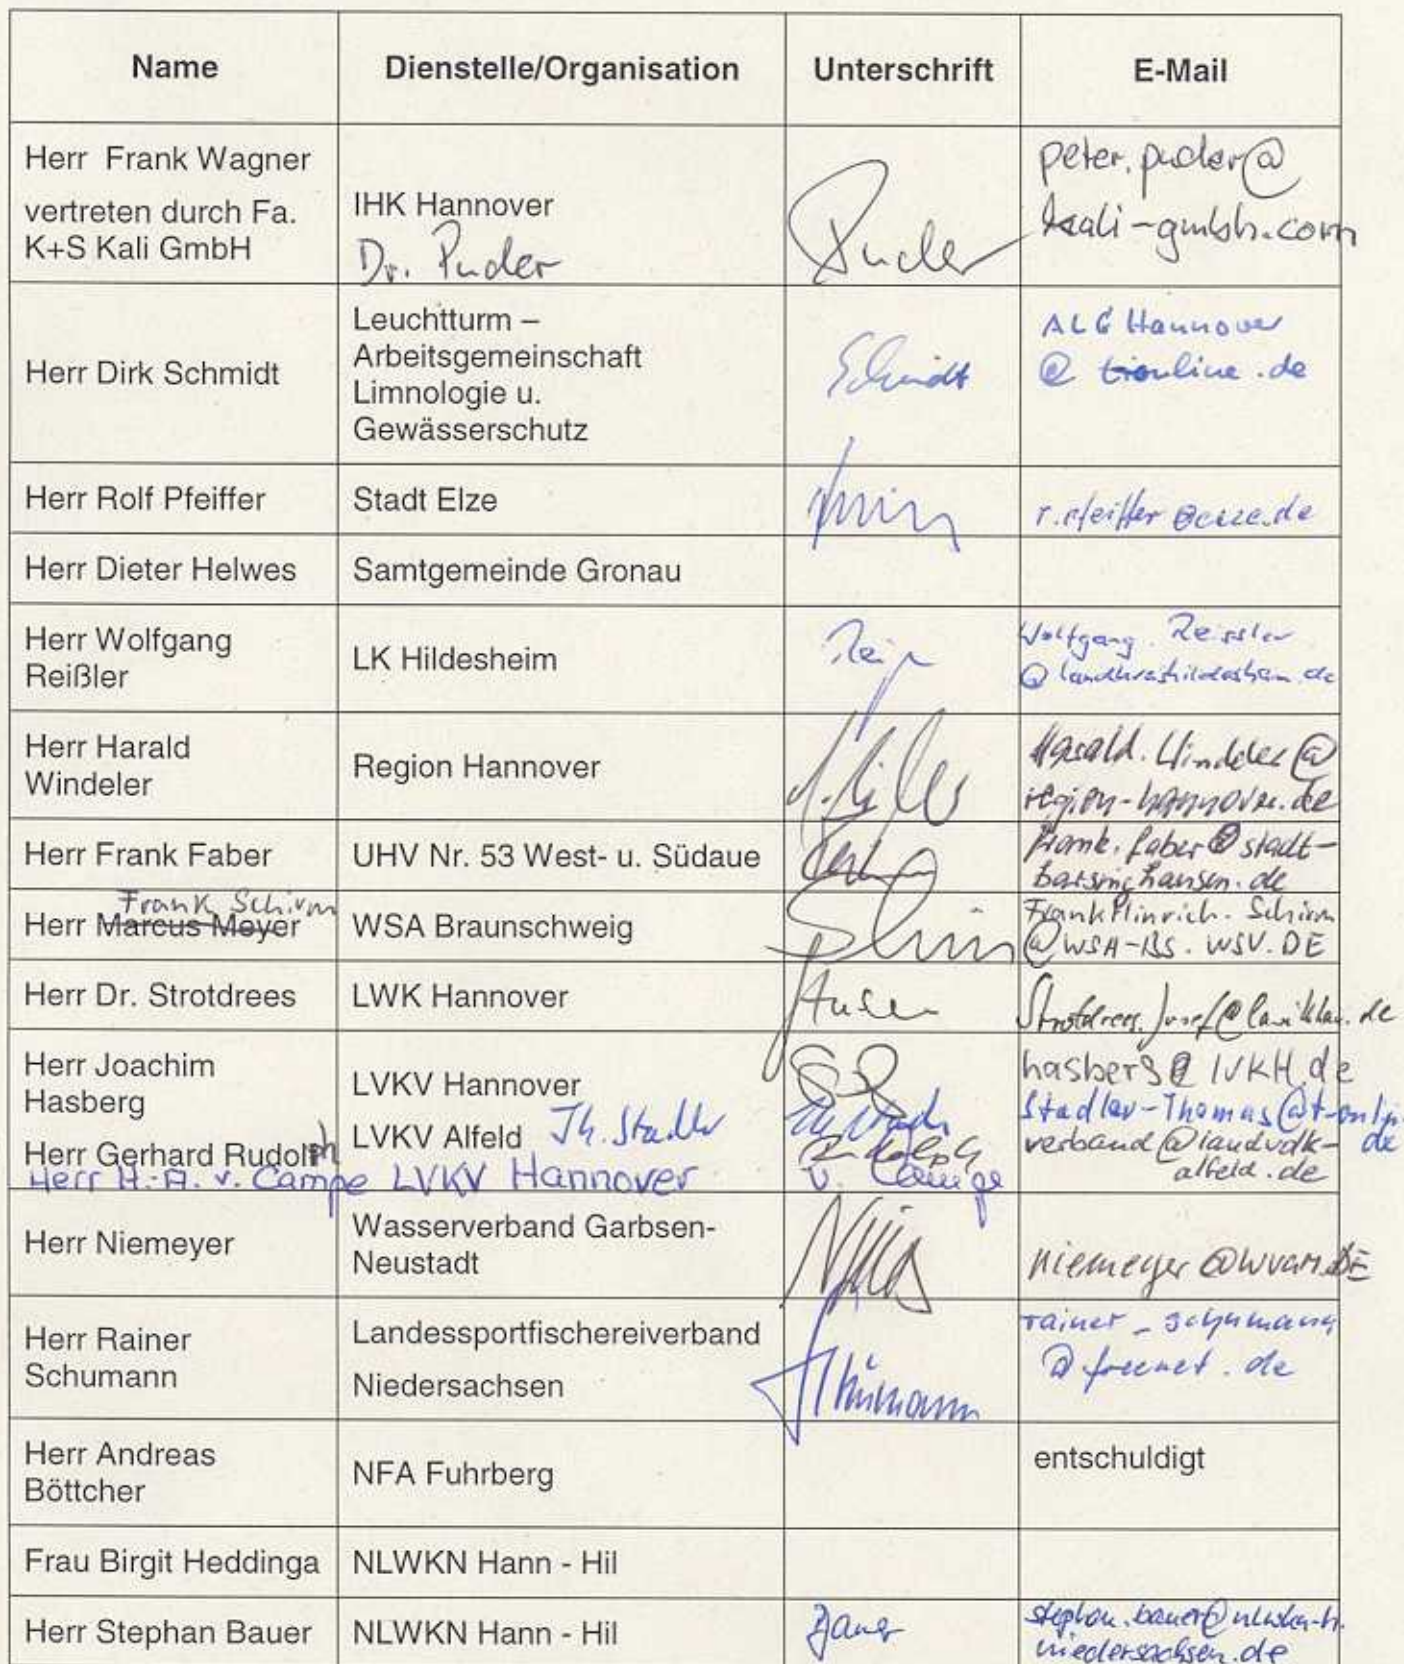 Name Dienstelle/Organisation Unterschrift E-Mail
Herr Frank Wagner
vertreten durch Fa.
K+S Kali GmbH
IHK Hannover
Dr. Puder
Puder
peter.puder@
kali-gmbh.com
Herr Dirk Schmidt
Leuchtturm –
Arbeitsgemeinschaft
Limnologie u.
Gewässerschutz
Schmidt
ALG Hannover
@ tionline.de
Herr Rolf Pfeiffer
Stadt Elze
r.pfeiffer@elze.de
Herr Dieter Helwes
Samtgemeinde Gronau
Herr Wolfgang
Reißler
LK Hildesheim
Wolfgang.Reissler
@landkreishildesheim.de
Herr Harald
Windeler
Region Hannover
Harald.Windeler@
region-hannover.de
Herr Frank Faber
UHV Nr. 53 West- u. Südaue
frank.faber@stadt-
barsinghausen.de
Frank Schirm
Herr Marcus Meyer
WSA Braunschweig
Schirm
FrankHinrich.Schirm
@WSA-BS.WSV.DE
Herr Dr. Strotdrees
LWK Hannover
Strotdrees.Josef@
Herr Joachim
Hasberg
LVKV Hannover
hasberg@LVKH.de
Th. Stadler
Stadler-Thomas@t-online.
de
Herr Gerhard Rudolph
LVKV Alfeld
Rudolph
verband@landvolk-
alfeld.de
Herr H.-A. v. Campe LVKV Hannover
v. Campe
Herr Niemeyer
Wasserverband Garbsen-
Neustadt
niemeyer
Herr Rainer
Schumann
Landessportfischereiverband
Niedersachsen
Schumann
rainer_schumann
@freenet.de
Herr Andreas
Böttcher
NFA Fuhrberg
entschuldigt
Frau Birgit Heddinga
NLWKN Hann - Hil
Herr Stephan Bauer
NLWKN Hann - Hil
Bauer
stephan.bauer@nlwkn-h.
niedersachsen.de